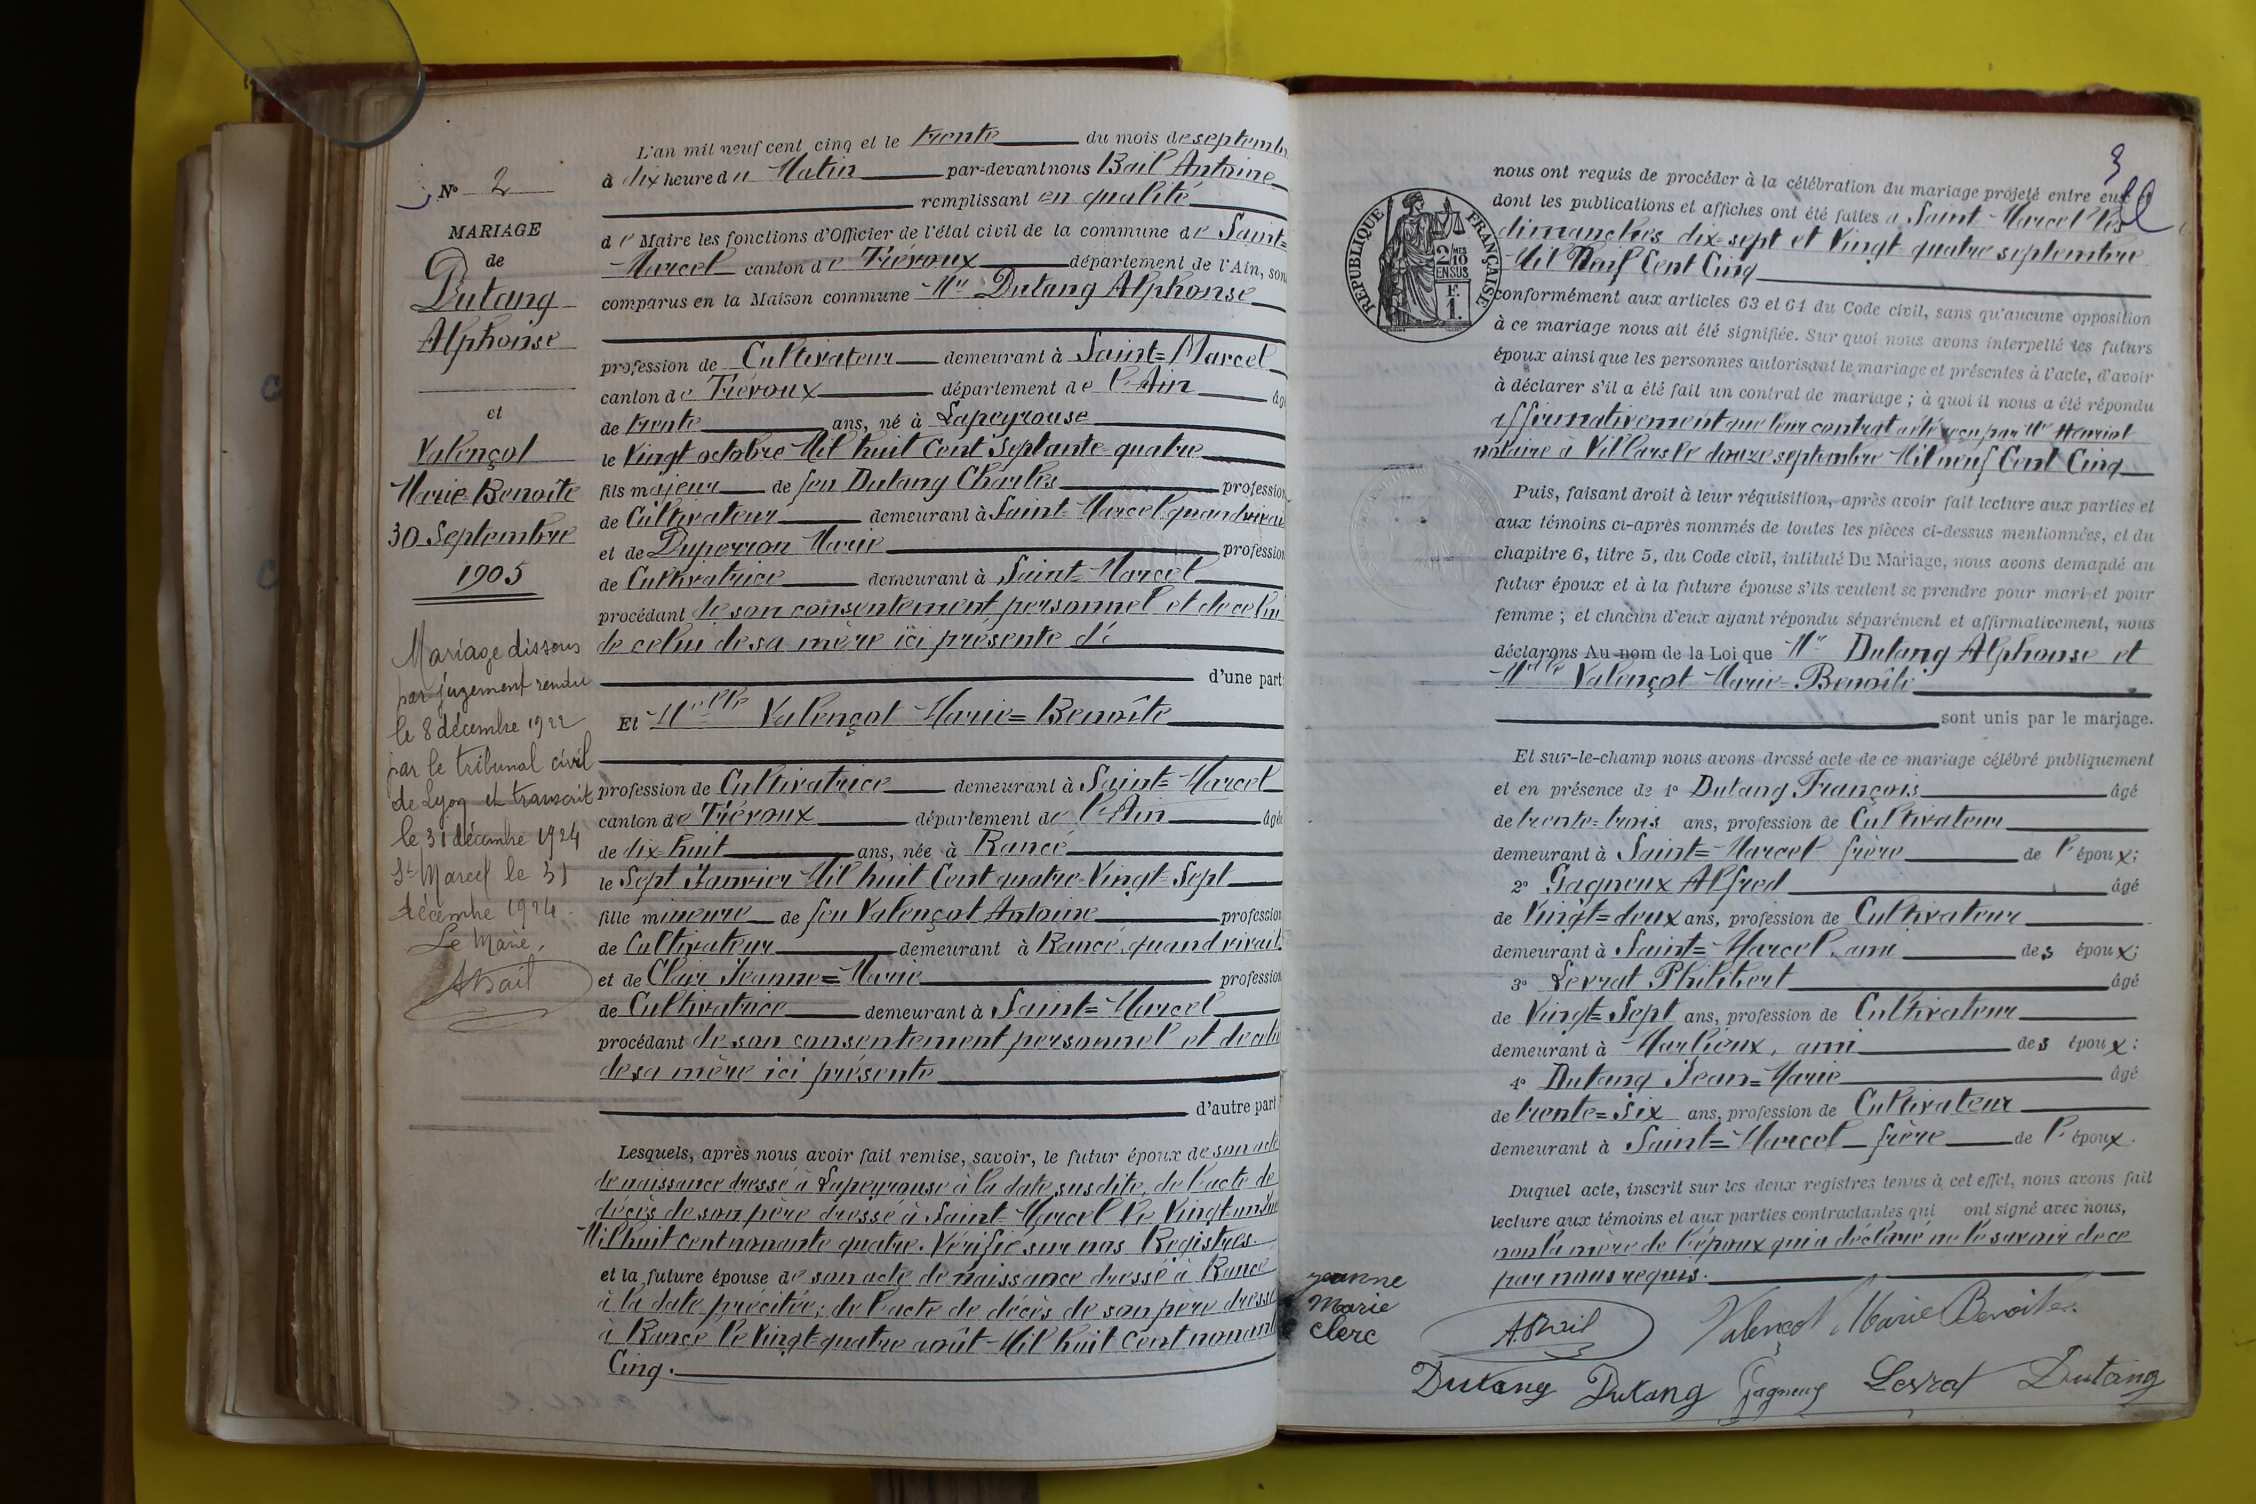 N° 2
MARIAGE
de
Dutang
Alphonse
et
Valençot
Marie=Benoîte
30 Septembre
1905
Mariage dissous
par jugement rendu
le 8 décembre 1922
par le tribunal civil
de Lyon et transcrit
le 31 décembre 1924
St Marcel le 31
décembre 1924.
Le Maire,
ABail
L'an mil neuf cent cinq et le trente du mois de septembre
à dix heure du Matin par-devant nous Bail Antoine
remplissant en qualité
de Maire les fonctions d'Officier de l'état civil de la commune de Saint=
Marcel canton de Trévoux département de l'Ain, son
comparus en la Maison commune Mr Dutang Alphonse
profession de Cultivateur demeurant à Saint=Marcel
canton de Trévoux département de l'Ain âgé
de trente ans, né à Lapeyrouse
le Vingt octobre Mil huit Cent Septante=quatre
fils majeur de feu Dutang Charles profession
de Cultivateur demeurant à Saint=Marcel quand vivait
et de Duperron Marie profession
de Cultivatrice demeurant à Saint=Marcel
procédant de son consentement personnel et de celui
de celui de sa mère ici présente d'
d'une part
Et Melle Valençot Marie=Benoîte
profession de Cultivatrice demeurant à Saint=Marcel
canton de Trévoux département de l'Ain âgée
de dix=huit ans, née à Rancé
le Sept Janvier Mil huit Cent quatre=Vingt=Sept
fille mineure de feu Valençot Antoine profession
de Cultivateur demeurant à Rancé, quand vivait.
et de Clair Jeanne=Marie profession
de Cultivatrice demeurant à Saint=Marcel
procédant de son consentement personnel et de celui
de sa mère ici présente
d'autre part
Lesquels, après nous avoir fait remise, savoir, le futur époux de son acte
de naissance dressé à Lapeyrouse à la date susdite, de l'acte de
décès de son père dressé à Saint=Marcel le Vingt=un
Mil huit cent nonante quatre. Vérifié sur nos Registres.
et la future épouse de son acte de naissance dressé à Rancé
à la date précitée; de l'acte de décès de son père dressé
à Rancé le Vingt=quatre août Mil huit Cent nonante
Cinq.
3
nous ont requis de procéder à la célébration du mariage projeté entre eux
dont les publications et affiches ont été faites à Saint=Marcel les
dimanches dix=sept et Vingt quatre septembre
Mil Neuf Cent Cinq
RÉPUBLIQUE FRANÇAISE
2/10
EN SUS
F.
1.
conformément aux articles 63 et 64 du Code civil, sans qu'aucune opposition
à ce mariage nous ait été signifiée. Sur quoi nous avons interpellé les futurs
époux ainsi que les personnes autorisant le mariage et présentes à l'acte, d'avoir
à déclarer s'il a été fait un contrat de mariage ; à quoi il nous a été répondu
affirmativement que leur contrat a été reçu par Me Henriot
notaire à Villars le douze septembre Mil neuf Cent Cinq
Puis, faisant droit à leur réquisition, après avoir fait lecture aux parties et
aux témoins ci-après nommés de toutes les pièces ci-dessus mentionnées, et du
chapitre 6, titre 5, du Code civil, intitulé Du Mariage, nous avons demandé au
futur époux et à la future épouse s'ils veulent se prendre pour mari et pour
femme ; et chacun d'eux ayant répondu séparément et affirmativement, nous
déclarons Au nom de la Loi que Mr Dutang Alphonse et
Melle Valençot Marie=Benoîte
sont unis par le mariage.
Et sur-le-champ nous avons dressé acte de ce mariage célébré publiquement
et en présence de 1° Dutang François âgé
de trente=trois ans, profession de Cultivateur
demeurant à Saint=Marcel frère de l'époux;
2° Gagneux Alfred âgé
de Vingt=deux ans, profession de Cultivateur
demeurant à Saint=Marcel, ami des époux;
3° Levrat Philibert âgé
de Vingt=Sept ans, profession de Cultivateur
demeurant à Marlieux, ami des époux;
4° Dutang Jean=Marie âgé
de trente=Six ans, profession de Cultivateur
demeurant à Saint=Marcel frère de l'époux.
Duquel acte, inscrit sur les deux registres tenus à cet effet, nous avons fait
lecture aux témoins et aux parties contractantes qui ont signé avec nous,
non la mère de l'époux qui a déclaré ne le savoir de ce
par nous requis.
jeanne
Marie
clerc
ABail
Valençot Marie Benoîte
Dutang Dutang Gagneux Levrat Dutang